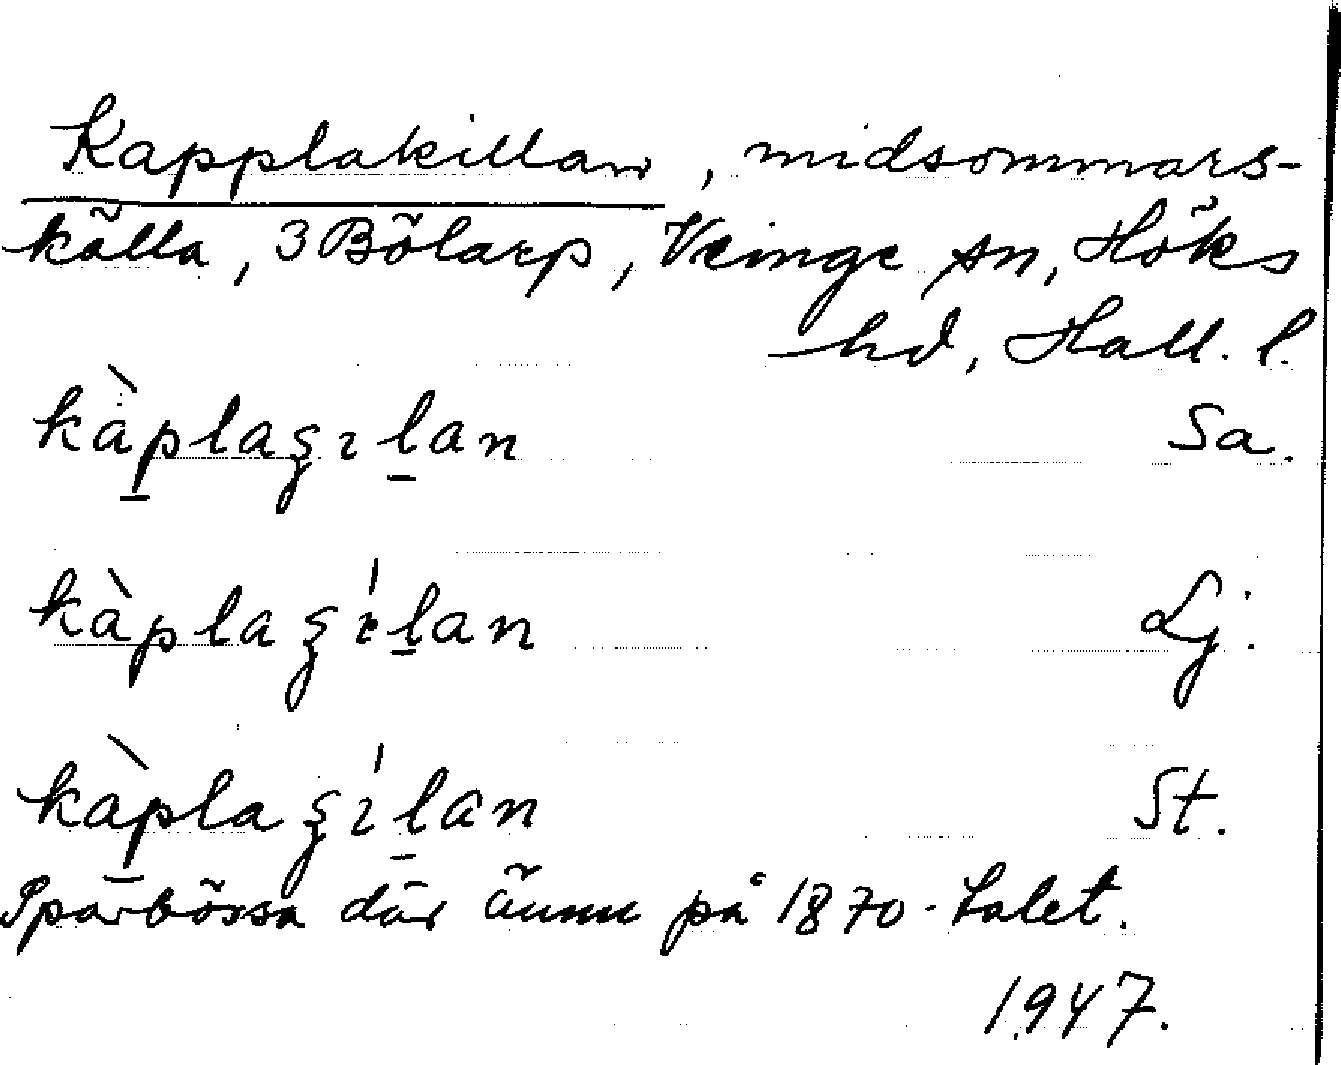 Kapplakillan, midsommars-
källa, 3 Bölarp, Veinge sn, Höks
hd, Hall. l.
kàplaʒılan Sa.
kàplaʒı́lan Lj.
kàplaʒı́lan St.
Sparbössa där ännu på 1870-talet.
1947.